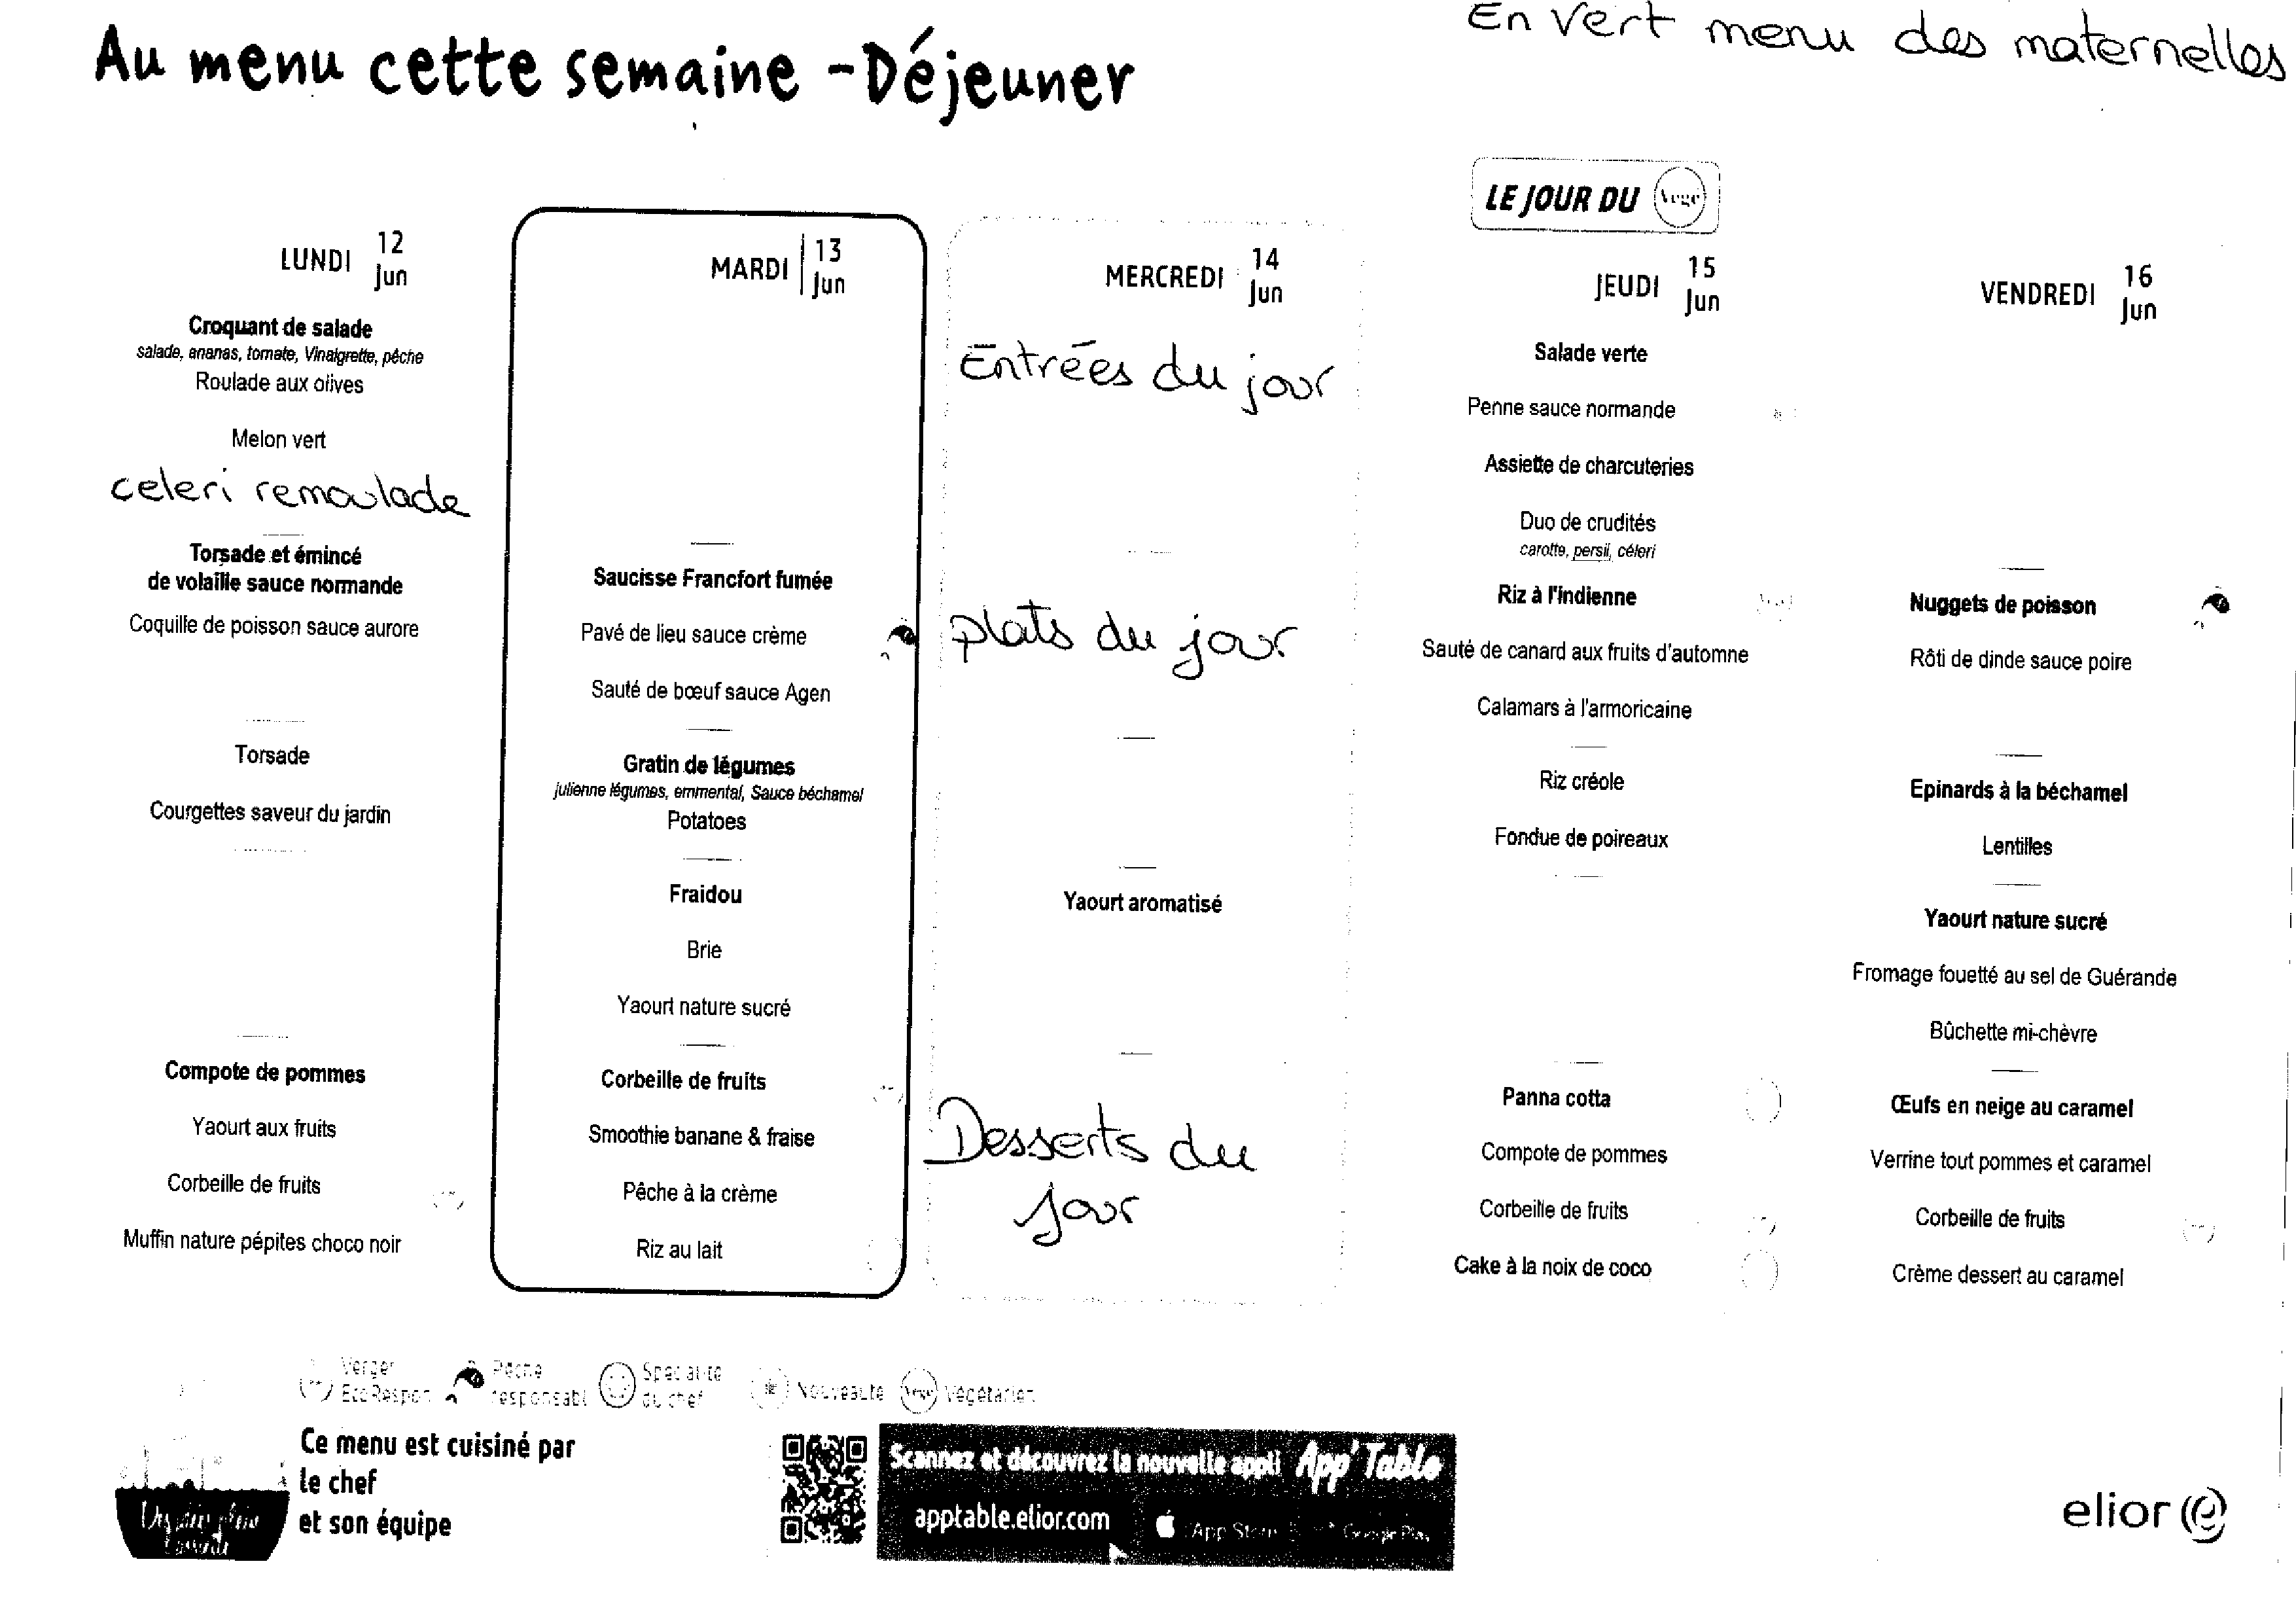 En vert menu des maternelles
Au menu cette semaine -Déjeuner
LE JOUR DU Végé
LUNDI 12 Jun
Croquant de salade
salade, ananas, tomate, Vinaigrette, pêche
Roulade aux olives
Melon vert
celeri remoulade
Torsade et émincé
de volaille sauce normande
Coquille de poisson sauce aurore
Torsade
Courgettes saveur du jardin
Compote de pommes
Yaourt aux fruits
Corbeille de fruits
Muffin nature pépites choco noir
MARDI 13 Jun
Saucisse Francfort fumée
Pavé de lieu sauce crème
Sauté de bœuf sauce Agen
Gratin de légumes
julienne légumes, emmental, Sauce béchamel
Potatoes
Fraidou
Brie
Yaourt nature sucré
Corbeille de fruits
Smoothie banane & fraise
Pêche à la crème
Riz au lait
MERCREDI 14 Jun
Entrées du jour
plats du jour
Yaourt aromatisé
Desserts du
jour
JEUDI 15 Jun
Salade verte
Penne sauce normande
Assiette de charcuteries
Duo de crudités
carotte, persil, céleri
Riz à l'indienne
Sauté de canard aux fruits d'automne
Calamars à l'armoricaine
Riz créole
Fondue de poireaux
Panna cotta
Compote de pommes
Corbeille de fruits
Cake à la noix de coco
VENDREDI 16 Jun
Nuggets de poisson
Rôti de dinde sauce poire
Epinards à la béchamel
Lentilles
Yaourt nature sucré
Fromage fouetté au sel de Guérande
Bûchette mi-chèvre
Œufs en neige au caramel
Verrine tout pommes et caramel
Corbeille de fruits
Crème dessert au caramel
Verger
EcoRespon
Pêche
responsabl
Spécialité
du chef
Nouveauté
Végé Végétarien
Ce menu est cuisiné par
le chef
et son équipe
Scannez et découvrez la nouvelle appli App'Table
apptable.elior.com
App Store
Google Play
elior